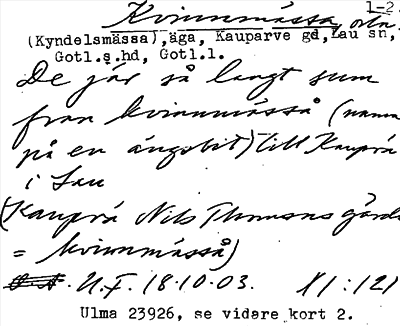 Kvinnmässa, orta 1-2
(Kyndelsmässa), äga, Kauparve gd, Lau sn,
Gotl.s.hd, Gotl.l.
De jär så langt sum
fran kvinnmässå (namn
på en ängsbit) till Kauprå
i Lau
(Kauprå Nils Thomsons gård
= kvinnmässå)
U.F. 18.10.03. XI:121
Ulma 23926, se vidare kort 2.